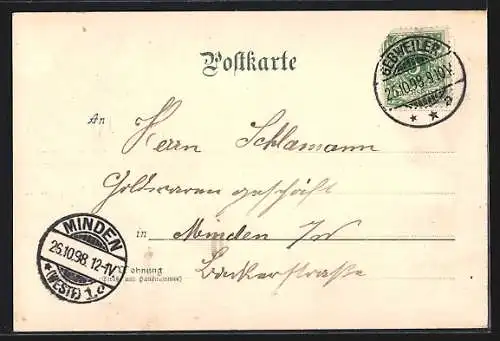 Postkarte
GEBWEILER
26.10.98.9.10V.
a
An
Herrn Schlamann
Goldwaren geschäft
in Minden i/W
MINDEN
26.10.98.12-1V
(WESTF) 1.
Wohnung
Bäckerstraße